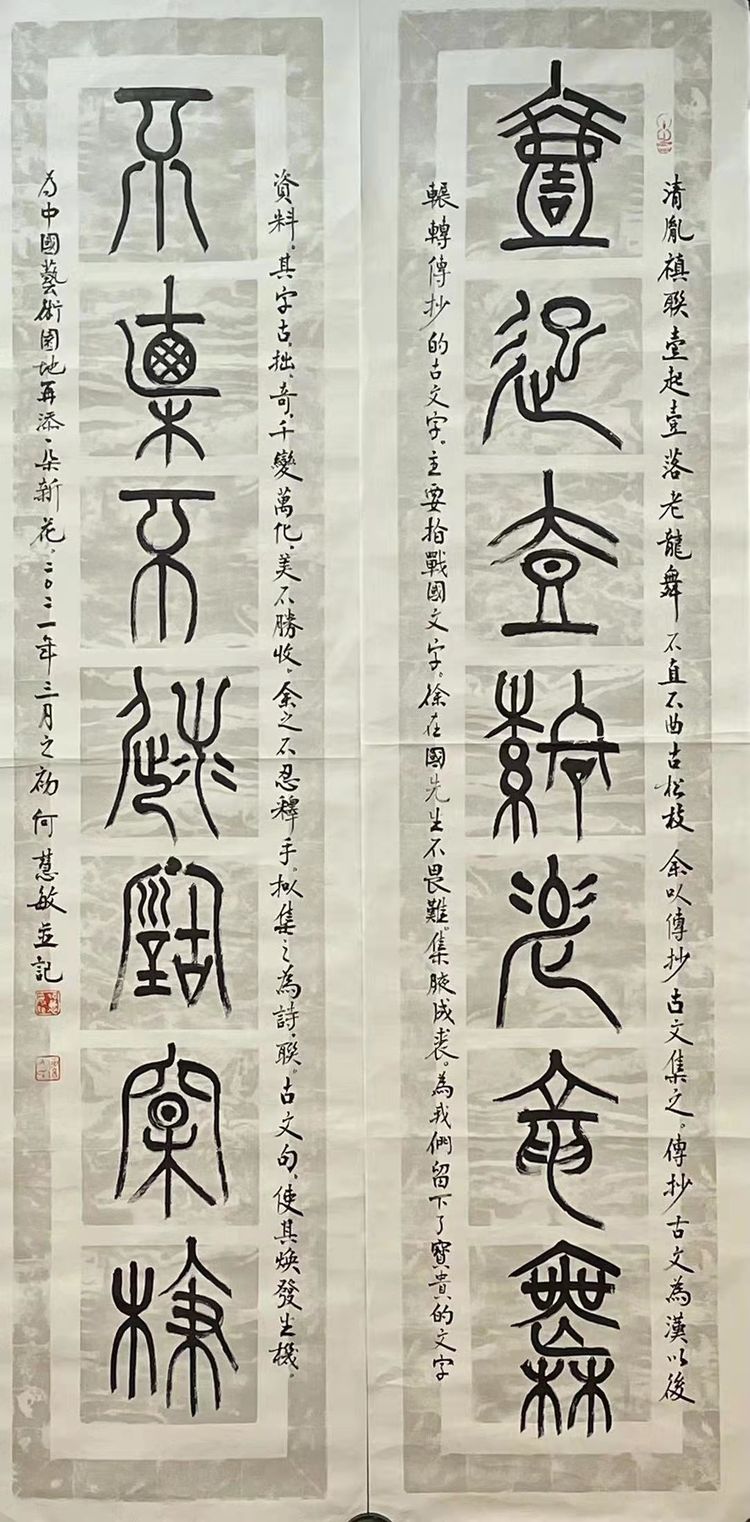 清胤禛聯壹起壹落老龍舞 不直不曲古松枝 余以傳抄古文集之。傳抄古文為漢以後
壹起壹落老龍舞
輾轉傳抄的古文字。主要指戰國文字。徐在國先生不畏難。集腋成裘。為我們留下了寶貴的文字
資料。其字古、拙、奇、千變萬化、美不勝收。余之不忍釋手。拟集之為詩、聯。古文句、使其煥發生機。
不直不曲古松枝
为中國藝術園地再添一朵新花。二〇二一年三月之初何慧敏並記